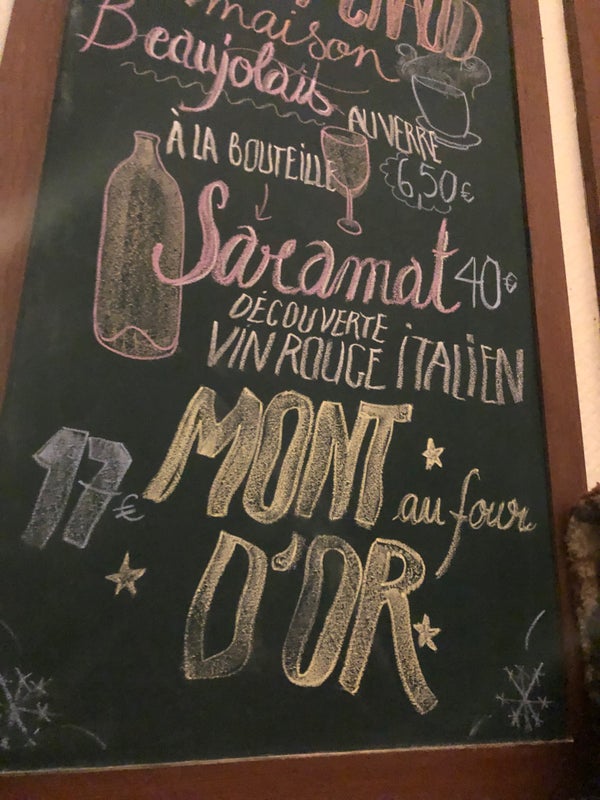 maison
Beaujolais
AU VERRE
6,50€
À LA BOUTEILLE
Saramat 40€
DÉCOUVERTE
VIN ROUGE ITALIEN
MONT
17€
au four
D'OR